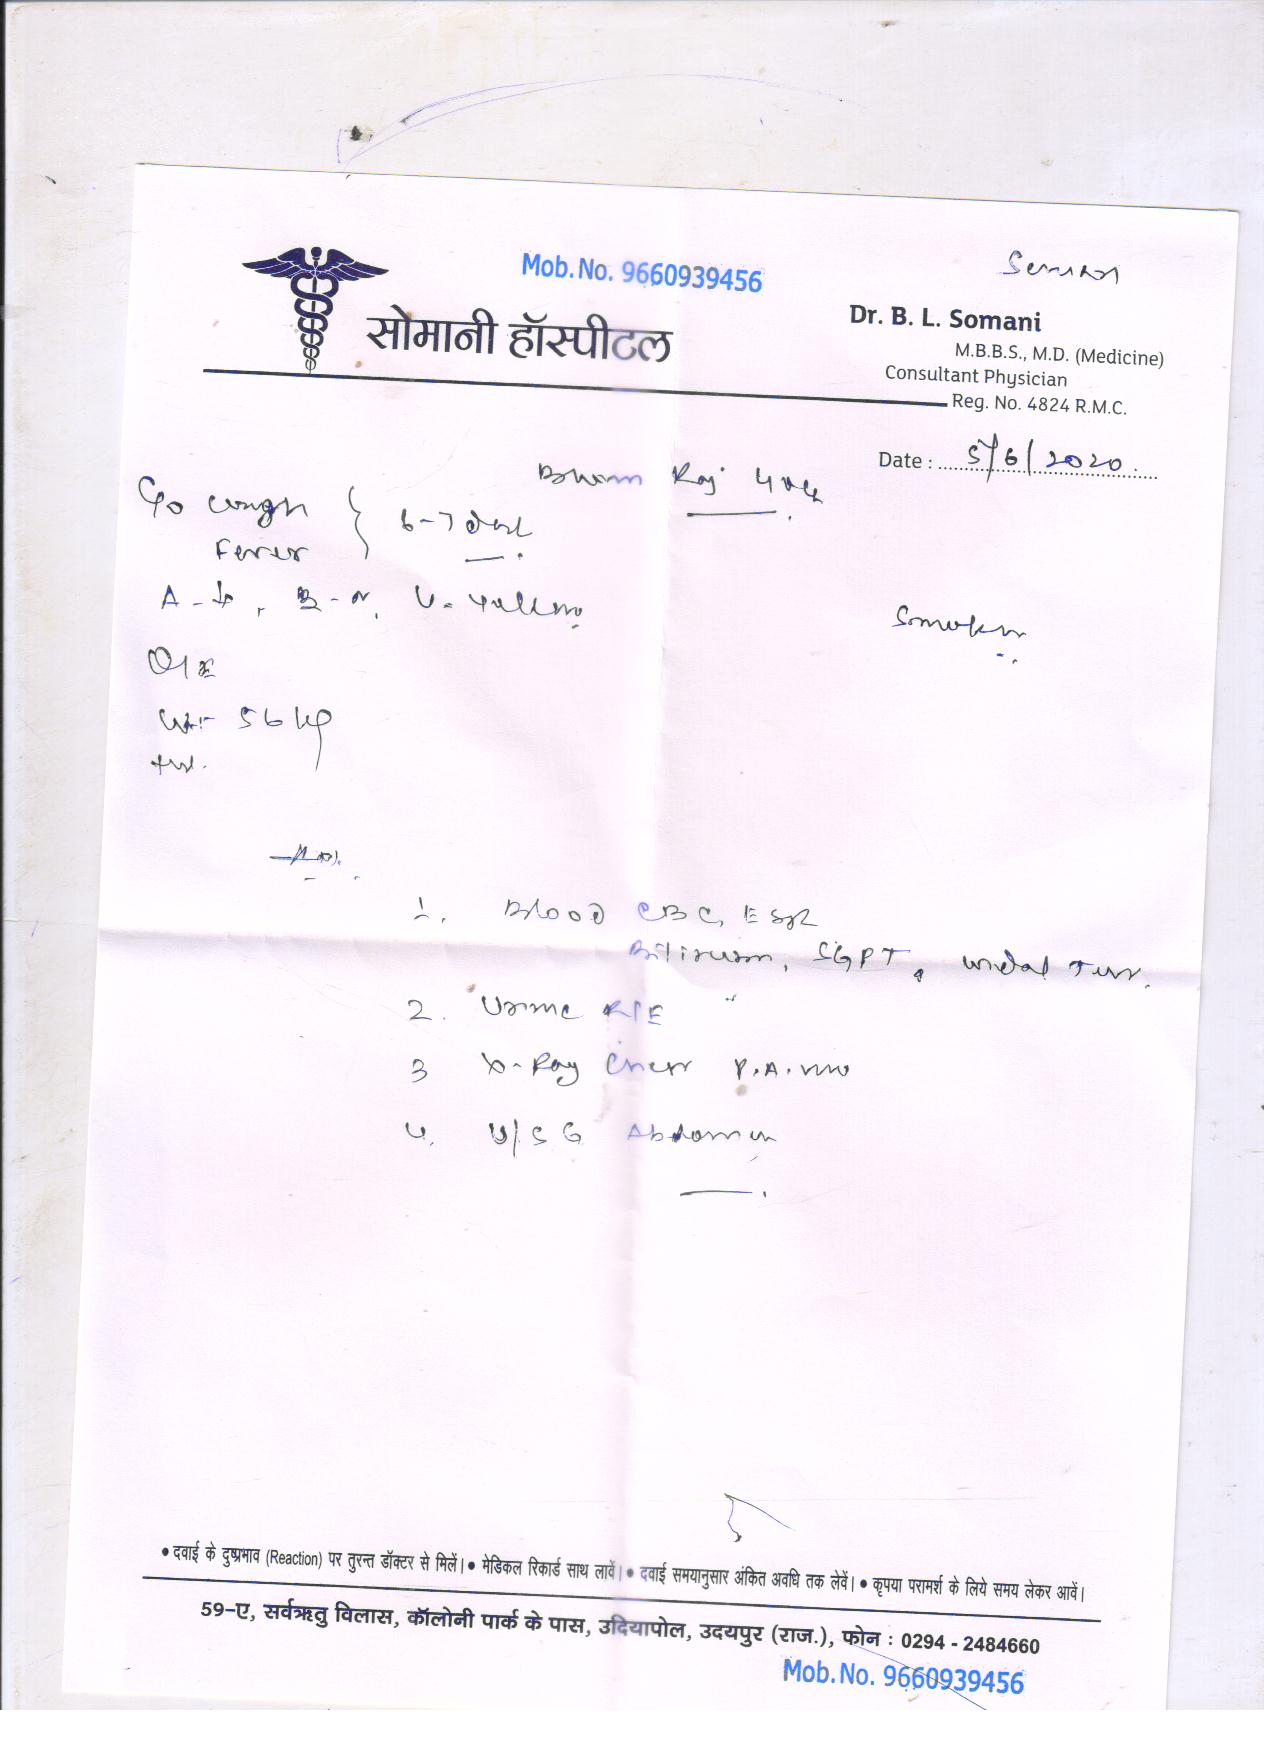 Mob.No. 9660939456
सोमानी हॉस्पीटल
Dr. B. L. Somani
M.B.B.S., M.D. (Medicine)
Consultant Physician
Reg. No. 4824 R.M.C.
Date : 5/6/2020
Raj
C/o Cough
Fever
6-7
A - , B - N, U - Yellow
Smoker
O/E
Wt:- 56 kg
1. Blood CBC, ESR
Bilirubin, SGPT, Widal Test
2. Urine R/E
3 X-Ray Chest P.A. view
4. U/S G Abdomen
• दवाई के दुष्प्रभाव (Reaction) पर तुरन्त डॉक्टर से मिलें। • मेडिकल रिकार्ड साथ लावें। • दवाई समयानुसार अंकित अवधि तक लेवें। • कृपया परामर्श के लिये समय लेकर आवें।
59-ए, सर्वऋतु विलास, कॉलोनी पार्क के पास, उदियापोल, उदयपुर (राज.), फोन : 0294 - 2484660
Mob.No. 9660939456